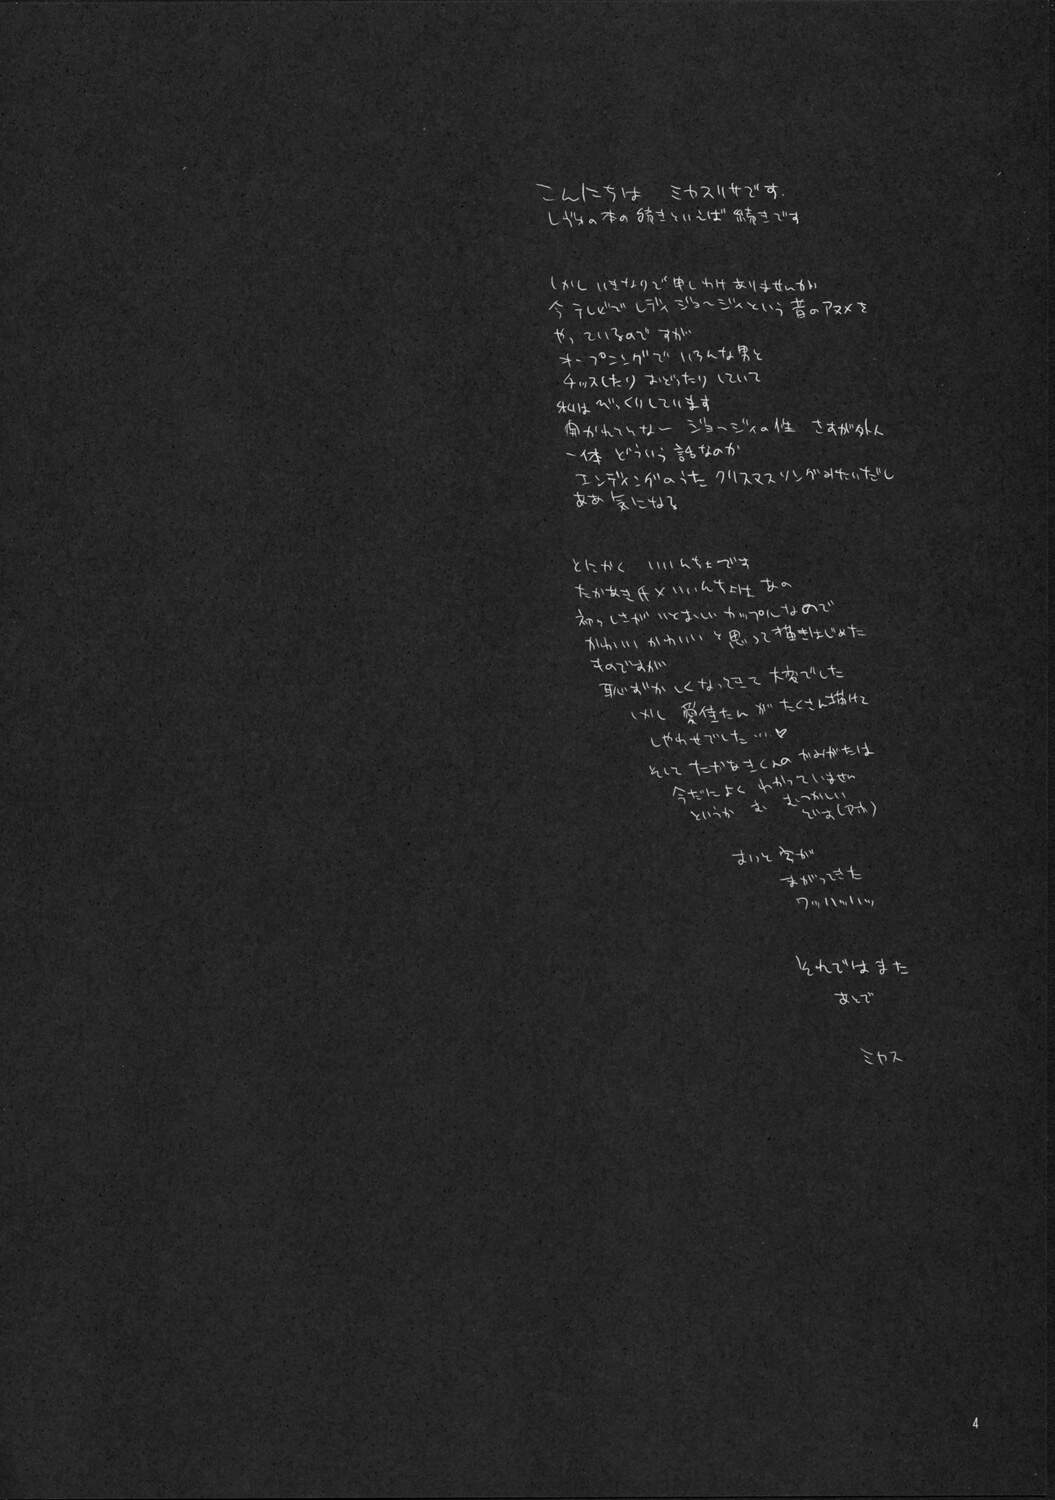 こんにちは ミカスリサです.
の本の続きといえば 続きです
しかし いきなりで 申しわけありませんが
今 テレビで レディジョージィという 昔のアニメを
やっているのですが
オープニングで いろんな男と
チッスしたり おどったりしていて
私は びっくりしています
ジョージィの性 さすが外人
一体 どういう 話なのか
エンディングのうた クリスマスソングみたいだし
ああ 気になる
とにかく いいんちょです
たかあき氏×いいんちょは あの
初々しさが いとおしい カップルなので
かわいい かわいい と思って 描きはじめた
ものですが
恥ずかしくなってきて 大変でした
しかし 愛佳たんが たくさん描けて
しやわせでした…♡
そして たかあきくんの かみがたは
今だによく わかっていません
というか む むつかしい
でま(アホ)
まがってきた
ワッハッハッ
それでは また
あとで
ミカス
4